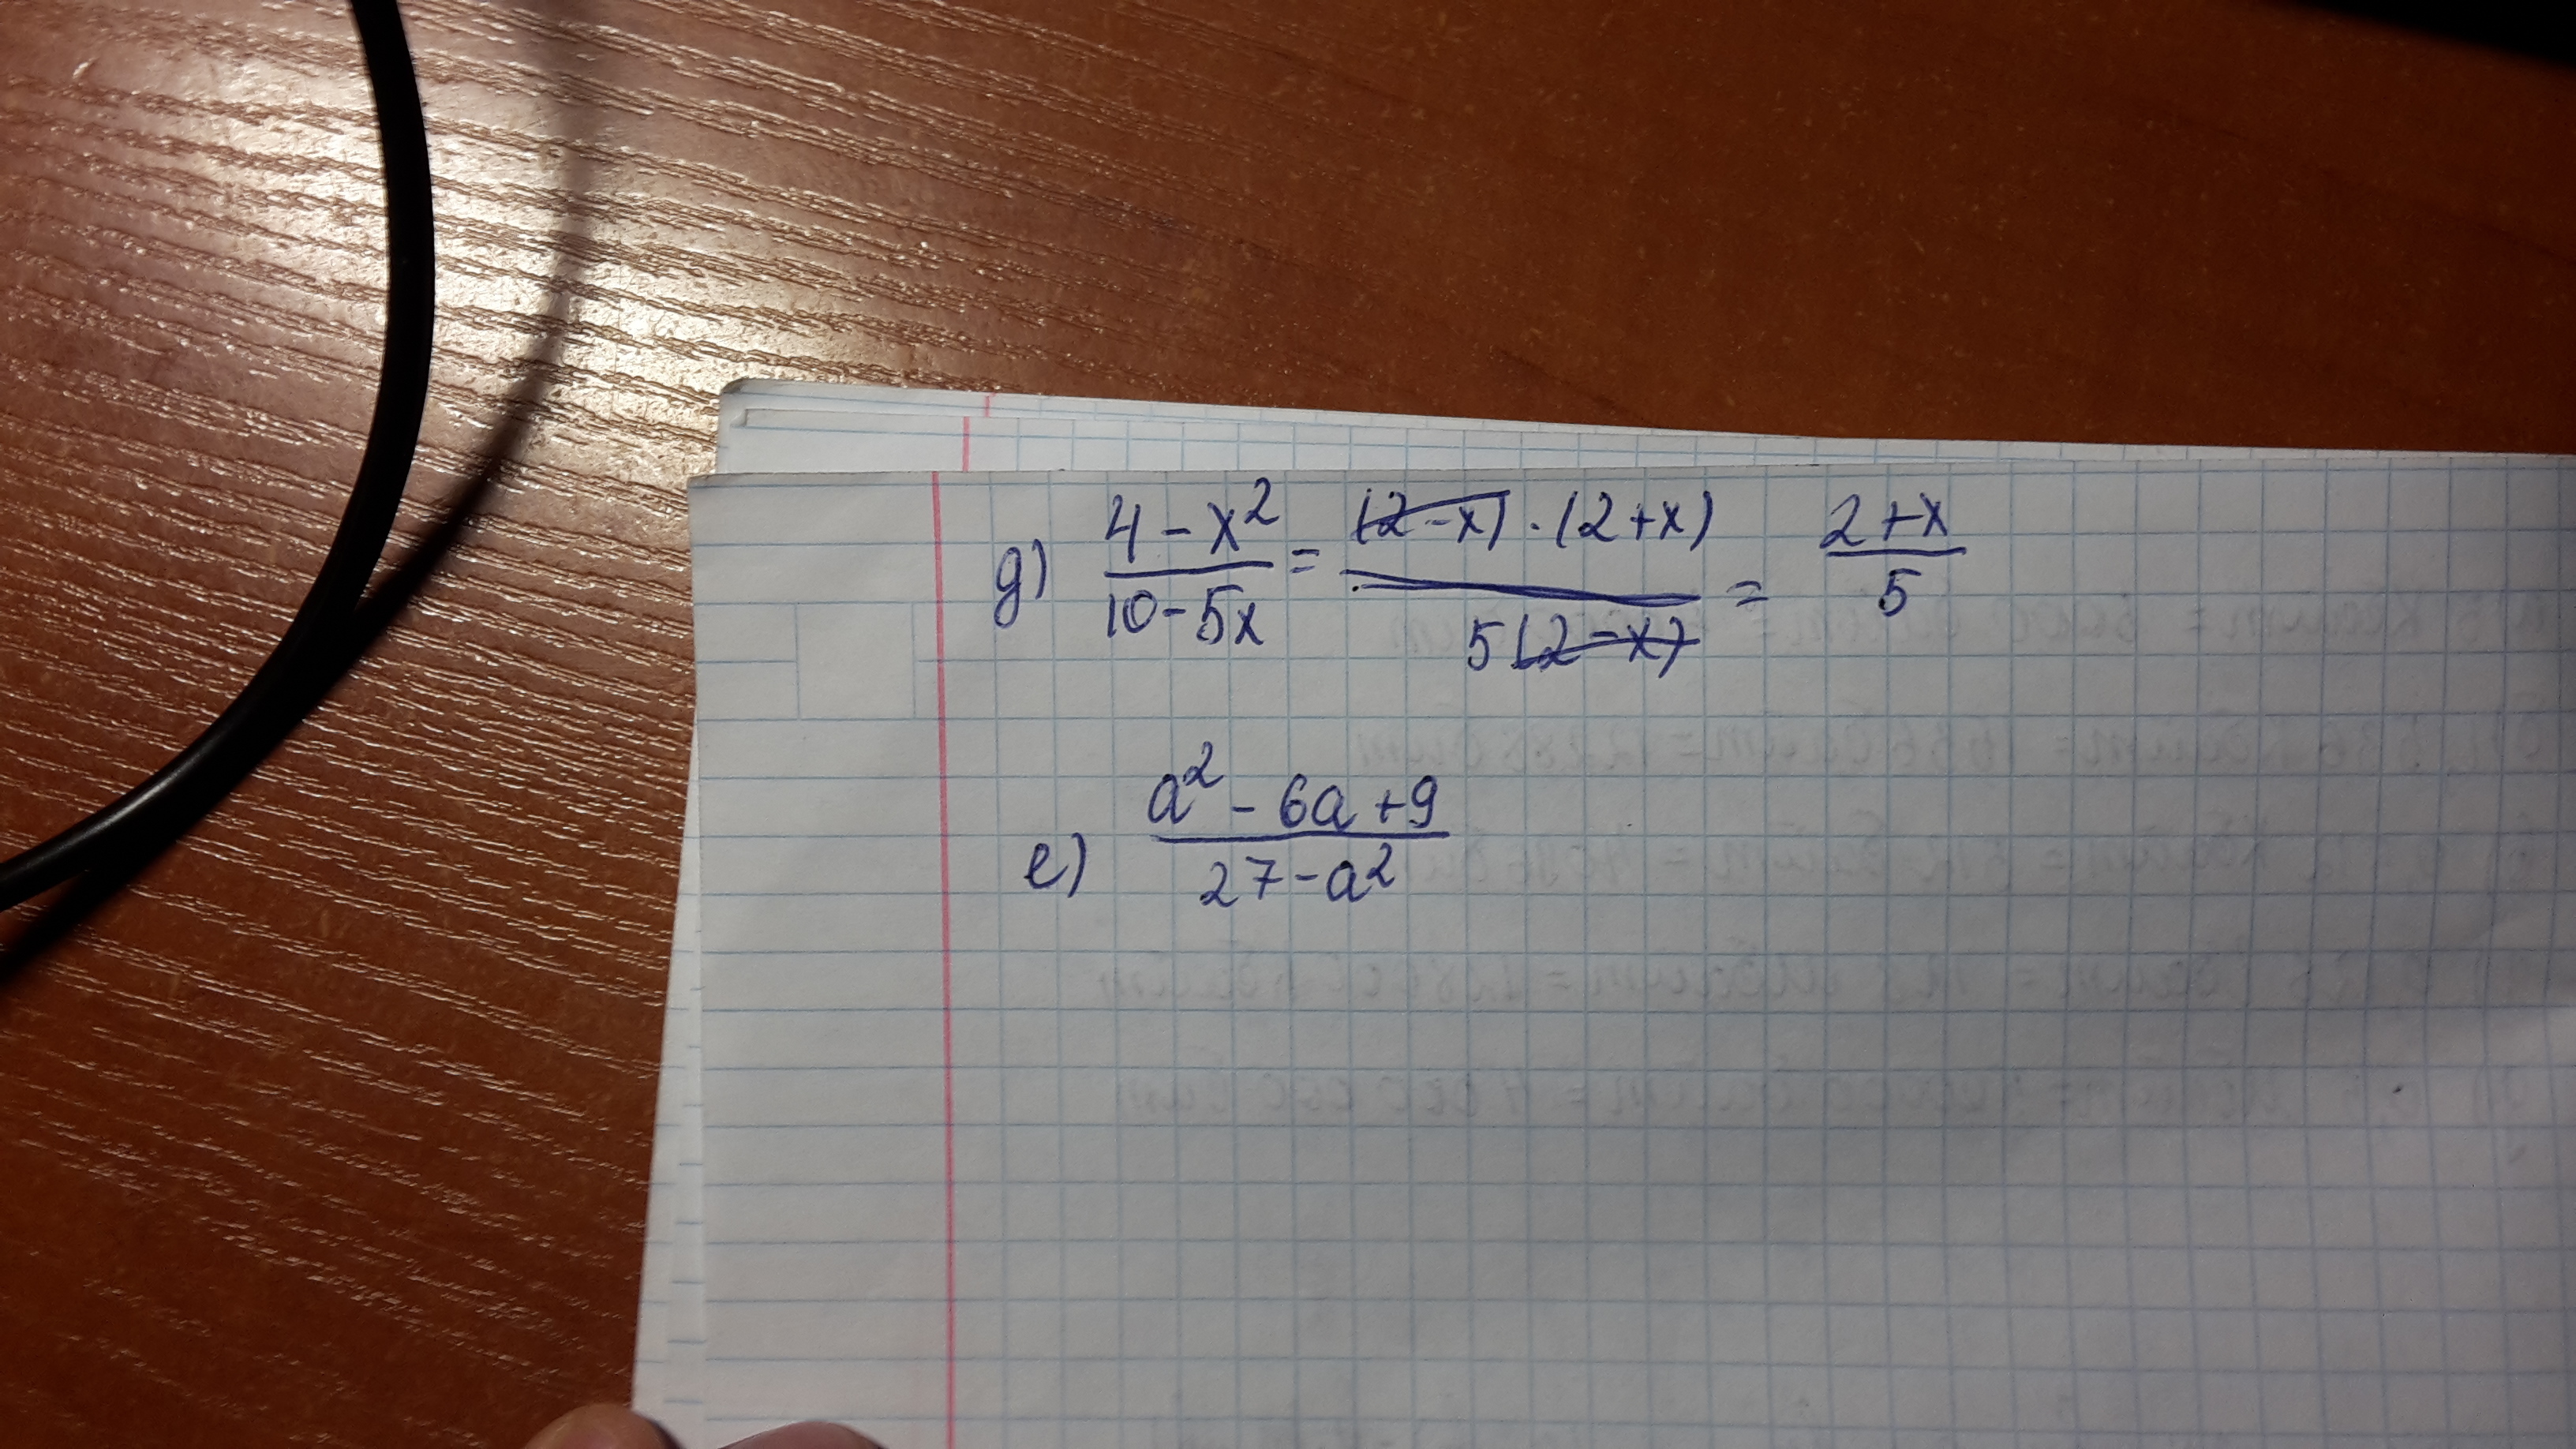 д) (4 - x²)/(10 - 5x) = ((2 - x) · (2 + x))/(5(2 - x)) = (2 + x)/5
е) (a² - 6a + 9)/(27 - a²)